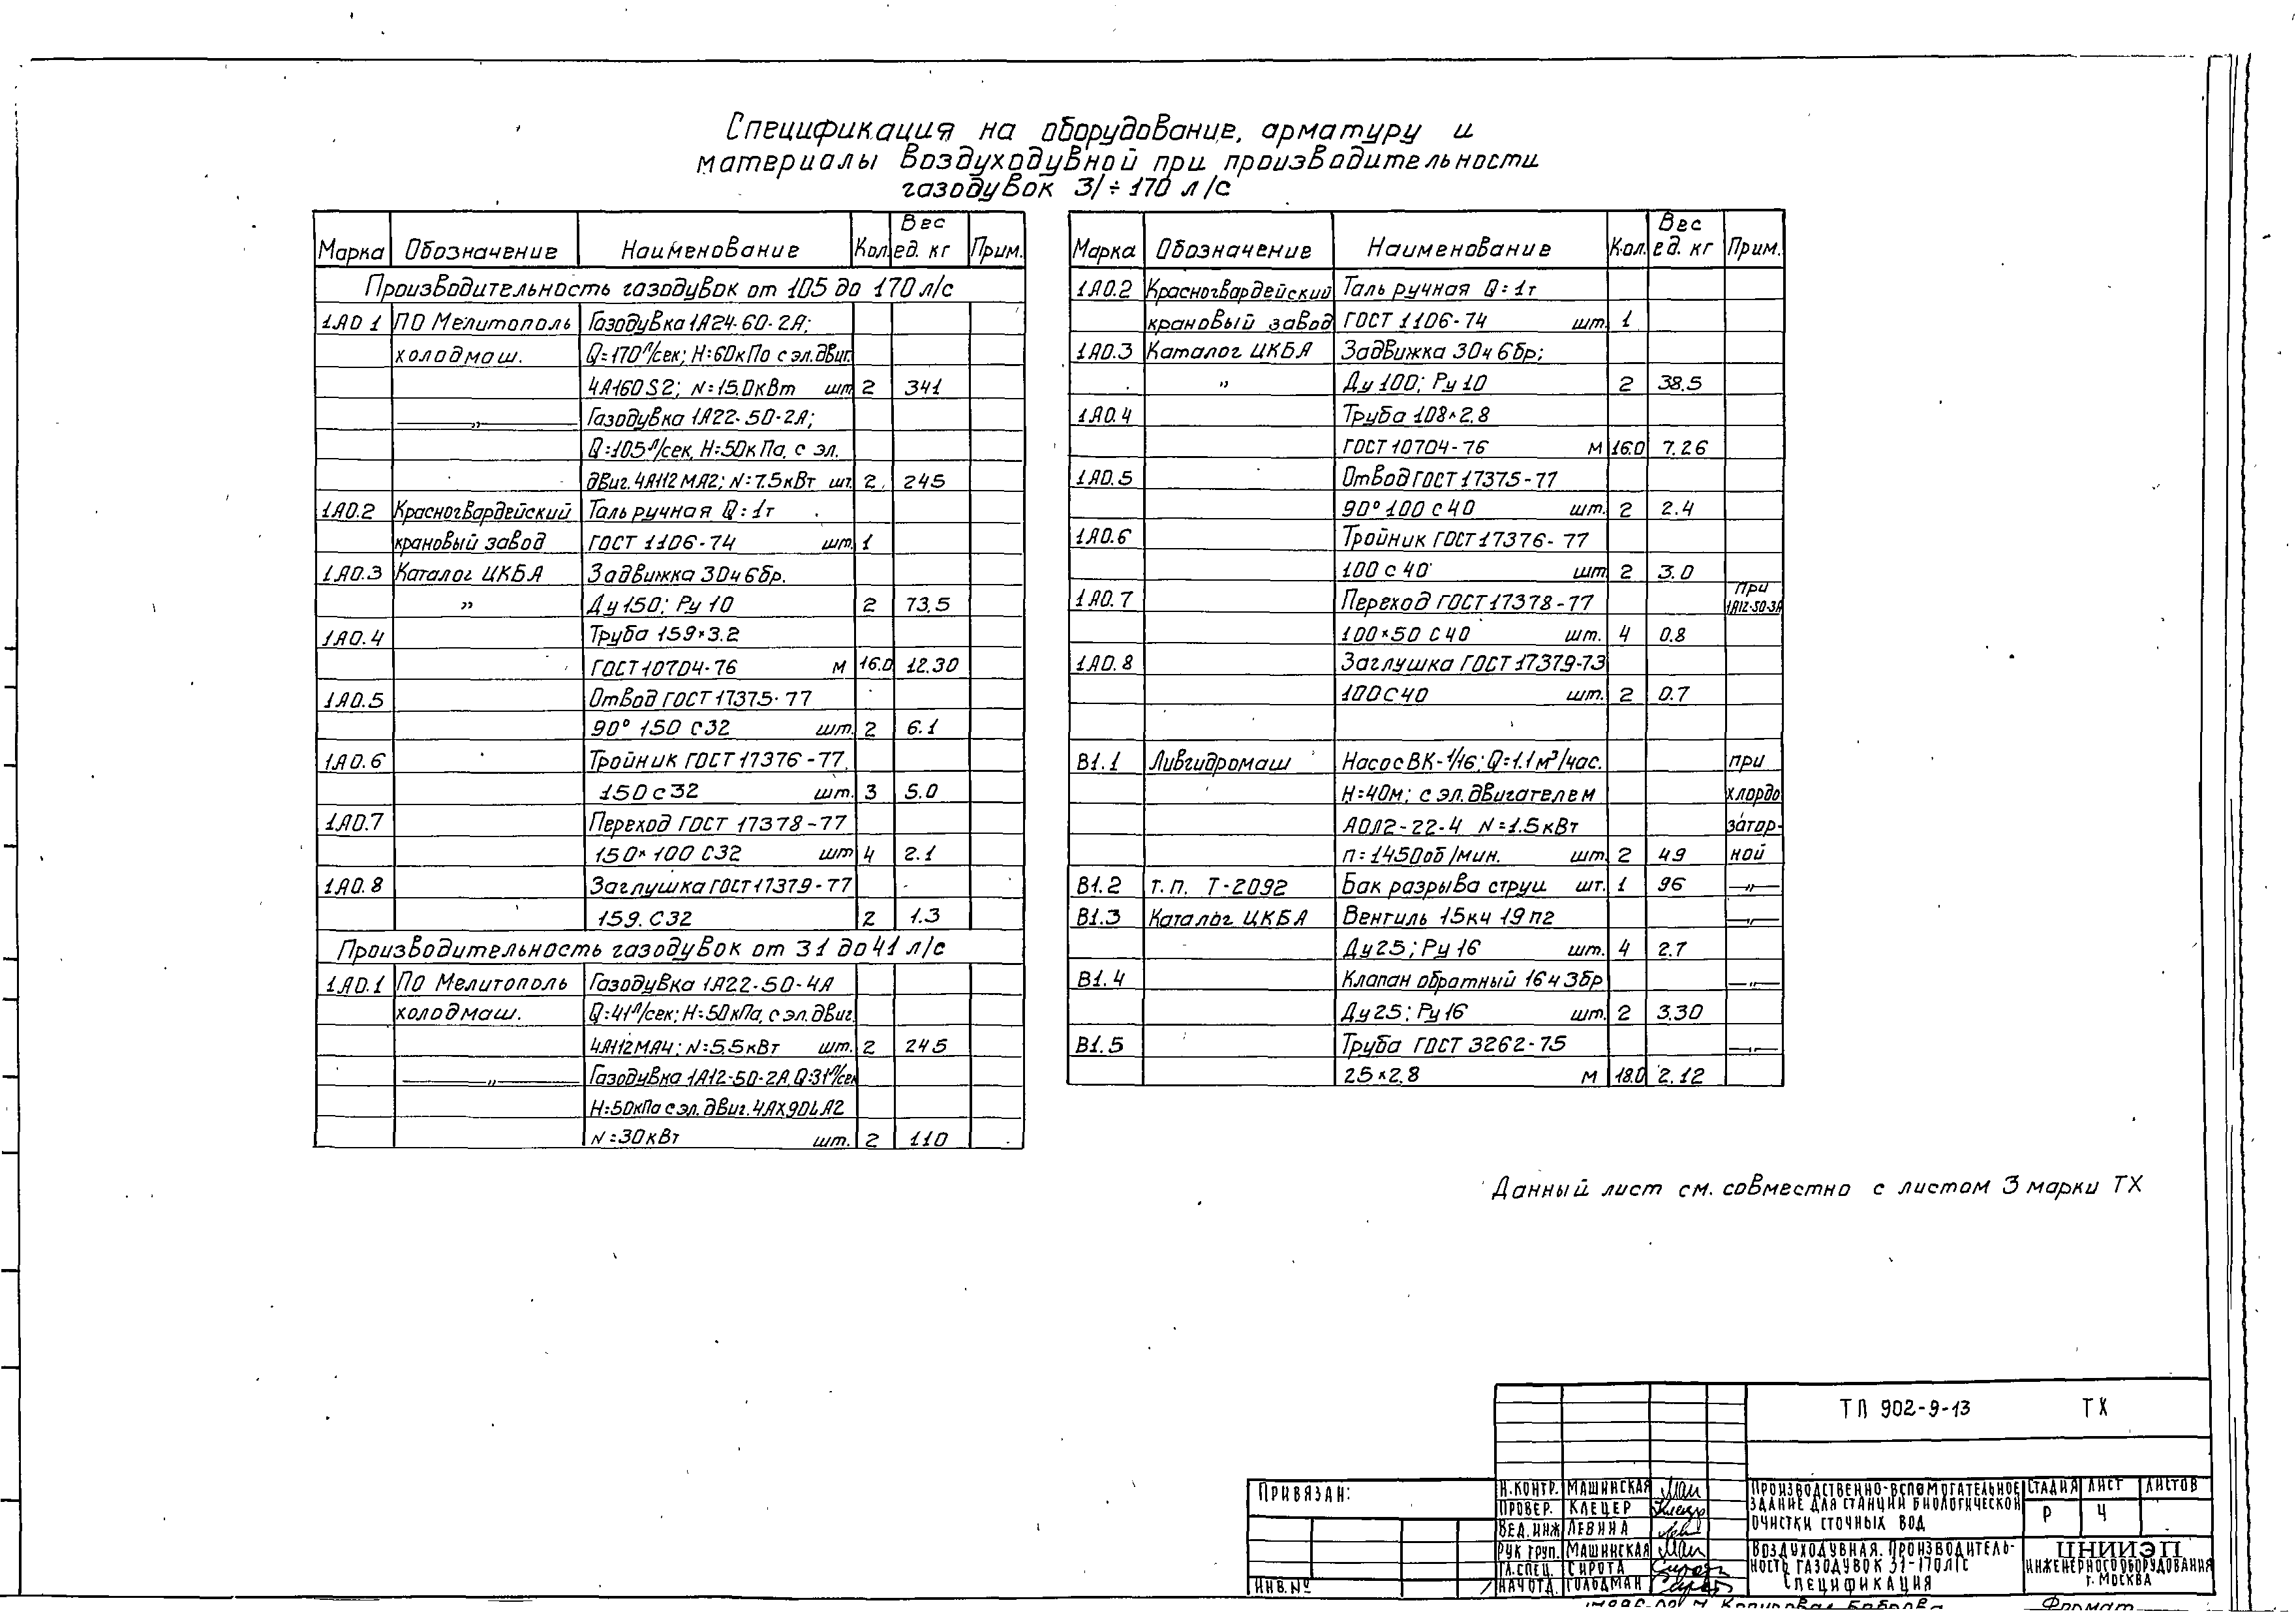 Спецификация на оборудование, арматуру и
материалы воздуходувной при производительности
газодувок 31÷170 л/с
Марка Обозначение Наименование Кол. Вес ед. кг Прим.
Производительность газодувок от 105 до 170 л/с
1А0 1 ПО Мелитополь Газодувка 1А24-60-2А;
холодмаш. Q=170 л/сек; Н=60кПа с эл. двиг.
4А160S2; N=15.0кВт шт 2 341
—„— Газодувка 1А22-50-2А;
Q=105 л/сек, Н=50кПа, с эл.
двиг. 4А112МА2; N=7.5кВт шт. 2 245
1А0.2 Красногвардейский Таль ручная Q=1т
крановый завод ГОСТ 1106-74 шт. 1
1А0.3 Каталог ЦКБА Задвижка 30ч6бр.
„ Ду150; Ру 10 2 73,5
1А0.4 Труба 159×3.2
ГОСТ 10704-76 м 16.0 12.30
1А0.5 Отвод ГОСТ 17375-77
90° 150 С32 шт. 2 6.1
1А0.6 Тройник ГОСТ 17376-77.
150 с 32 шт. 3 5.0
1А0.7 Переход ГОСТ 17378-77
150×100 С32 шт 4 2.1
1А0.8 Заглушка ГОСТ 17379-77
159. С32 2 1.3
Производительность газодувок от 31 до 41 л/с
1А0.1 ПО Мелитополь Газодувка 1А22-50-4А
холодмаш. Q=41 л/сек; Н=50кПа, с эл. двиг.
4А112МА4; N=5.5кВт шт. 2 245
—„— Газодувка 1А12-50-2А, Q=31 л/сек
Н=50кПа с эл. двиг. 4АХ90LА2
N=30кВт шт. 2 110
Марка Обозначение Наименование Кол. Вес ед. кг Прим.
1А0.2 Красногвардейский Таль ручная Q=1т
крановый завод ГОСТ 1106-74 шт. 1
1А0.3 Каталог ЦКБА Задвижка 30ч6бр;
„ Ду100; Ру10 2 38.5
1А0.4 Труба 108×2.8
ГОСТ 10704-76 м 16.0 7.26
1А0.5 Отвод ГОСТ 17375-77
90° 100 с 40 шт. 2 2.4
1А0.6 Тройник ГОСТ 17376-77
100 с 40 шт 2 3.0
1А0.7 Переход ГОСТ 17378-77 При 1А12-50-3А
100×50 С40 шт. 4 0.8
1А0.8 Заглушка ГОСТ 17379-73
100С40 шт. 2 0.7
В1.1 Ливгидромаш Насос ВК-1/16; Q=1.1 м³/час. при
Н=40м; с эл. двигателем хлордо
АОЛ2-22-4 N=1.5кВт затор-
n=1450об/мин. шт. 2 49 ной
В1.2 т.п. Т-2092 Бак разрыва струи шт. 1 96 —„—
В1.3 Каталог ЦКБА Вентиль 15кч 19п2 —„—
Ду25; Ру 16 шт. 4 2.7
В1.4 Клапан обратный 16ч3бр —„—
Ду25; Ру16 шт. 2 3.30
В1.5 Труба ГОСТ 3262-75 —„—
25×2.8 м 18.0 2.12
Данный лист см. совместно с листом 3 марки ТХ
ТП 902-9-13 ТХ
ПРИВЯЗАН:
ИНВ.№
Н.КОНТР. МАШИНСКАЯ
ПРОВЕР. КЛЕЦЕР
ВЕД.ИНЖ ЛЕВИНА
РУК ГРУП. МАШИНСКАЯ
ГЛ.СПЕЦ. СИРОТА
НАЧ ОТД. ГОЛОДМАН
ПРОИЗВОДСТВЕННО-ВСПОМОГАТЕЛЬНОЕ
ЗДАНИЕ ДЛЯ СТАНЦИИ БИОЛОГИЧЕСКОЙ
ОЧИСТКИ СТОЧНЫХ ВОД
СТАДИЯ ЛИСТ ЛИСТОВ
Р 4
ВОЗДУХОДУВНАЯ. ПРОИЗВОДИТЕЛЬ-
НОСТЬ ГАЗОДУВОК 31-170Л/С
СПЕЦИФИКАЦИЯ
ЦНИИЭП
ИНЖЕНЕРНОГО ОБОРУДОВАНИЯ
г. МОСКВА
Копировал Боброва Формат